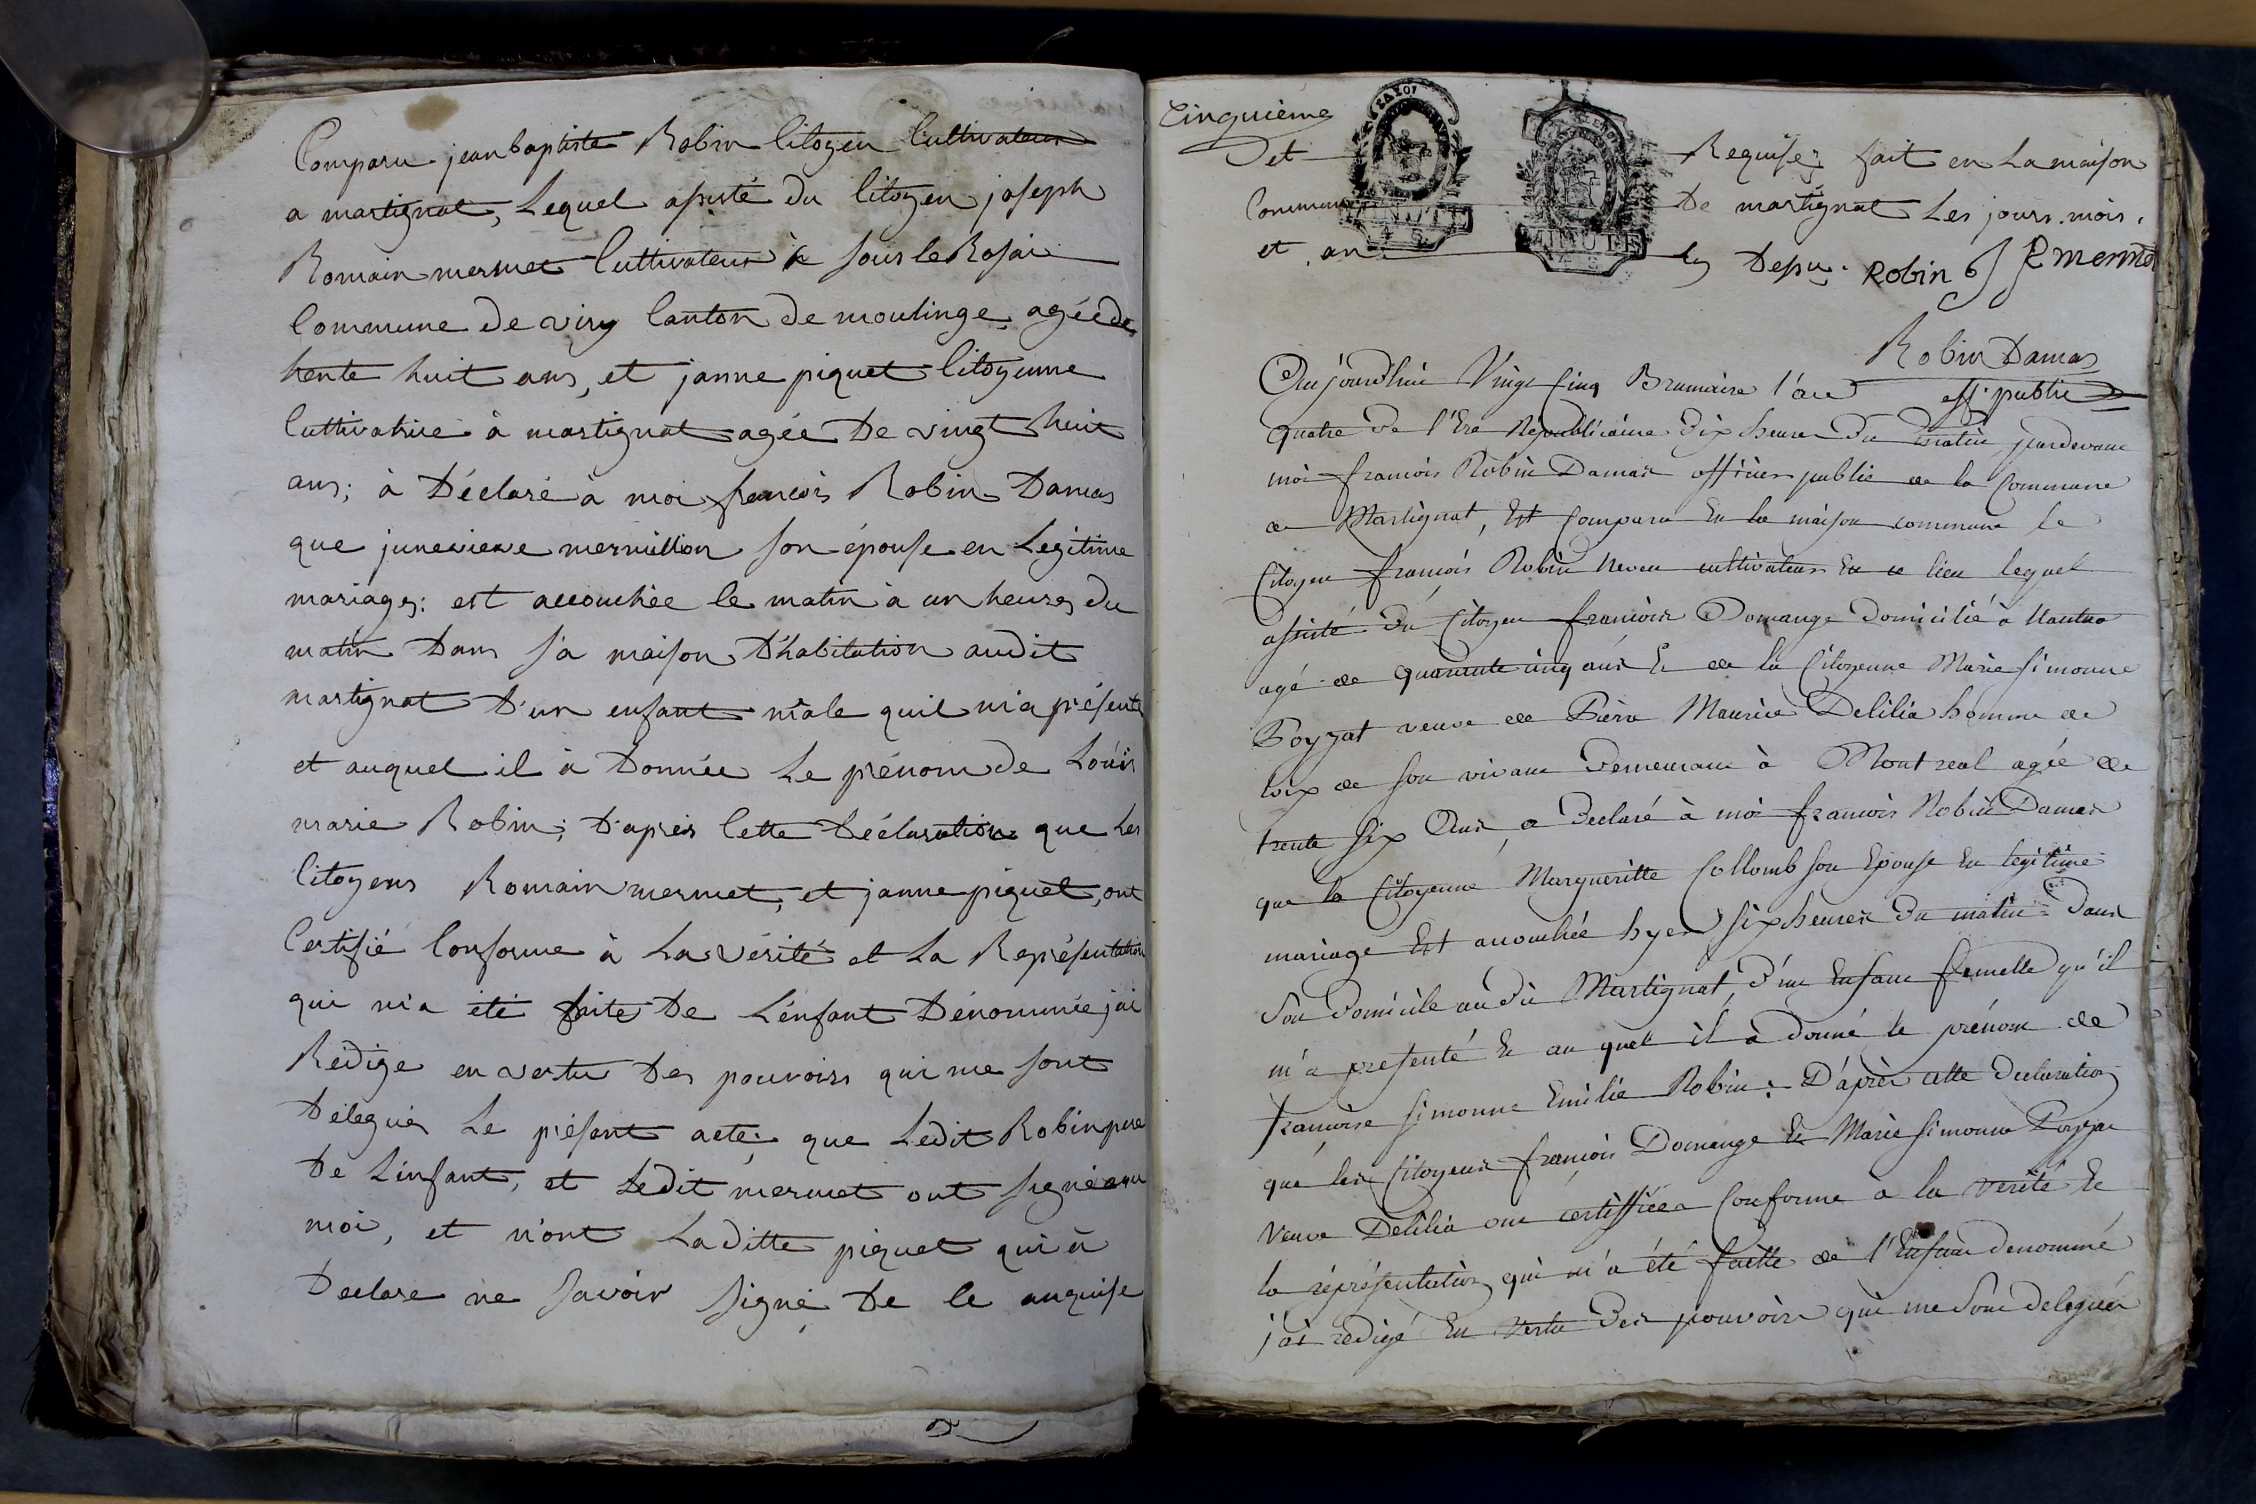 Comparu jean baptiste Robin Citoyen Cultivateur
a martignat, Lequel assisté du Citoyen joseph
Romain mermet Cultivateur à sous le Rosai
Commune de viry Canton de moulinge agée de
trente huit ans, et janne piquet Citoyenne
Cultivatrice à martignat agée de vingt huit
ans; à Déclaré à moi francois Robin Damas
que junevieve mermillion son épouse en Legitime
mariage; est accouchée le matin à un heures du
matin Dans sa maison D'habitation audit
martignat D'un enfant mâle quil m'a présenté
et auquel il à Donnée Le prénom de Loüis
marie Robin; D'aprèis Cette Déclaration que Les
Citoyens Romain mermet, et janne piquet, ont
Certifié Conforme à La vérité et La Représentation
qui m'a été faite De L'enfant Dénommée j'ai
Rédige en vertu Des pouvoirs qui me sont
Délégués Le présent acte; que Ledit Robin pere
De L'enfant, et Ledit mermet ont signé avec
moi, et n'ont Laditte piquet qui à
Declare ne savoir signé De le enquise
Cinquième
et Requise; fait en La maison
Commune De martignat Les jours. mois.
et an Robin J R mermet
Robin Damas
off. public
Aujourd'hui Vingt Cinq Brumaire l'an
quatre de l'Ere Republicaine Dix heures Du matin pardevant
moi francois Robin Damas officier public de la Commune
de Martignat, Est Comparu En la maison commune le
Citoyen francois Robin Neveu cultivateur En ce lieu lequel
assisté du Citoyen francois Domange Domicilié à Nantua
agé de quarante cinq ans Et de la Citoyenne Marie simonne
Poyzat veuve de Pière Maurice Delilia homme de
loix de son vivant Demeurant à Montreal agée de
trente six Ans, a Declaré à moi francois Robin Damas
que la Citoyenne Margueritte Collomb son Epouse En legitime
mariage Est accouchée hyer six heures du matin Dans
son Domicile audit Martignat D'un Enfant femelle qu'il
m'a presenté Et au quel il à donné le prénom de
francoise simonne Emilie Robin; D'après cette declaration
que les Citoyens francois Domange Et Marie simonne Poyzat
Veuve Delilia ont certiffiée Conforme à la verité Et
la réprésentation qui m'a été faitte de l'Enfant denommé
j'ai redigé En vertu Des pouvoirs qui me sont delegués